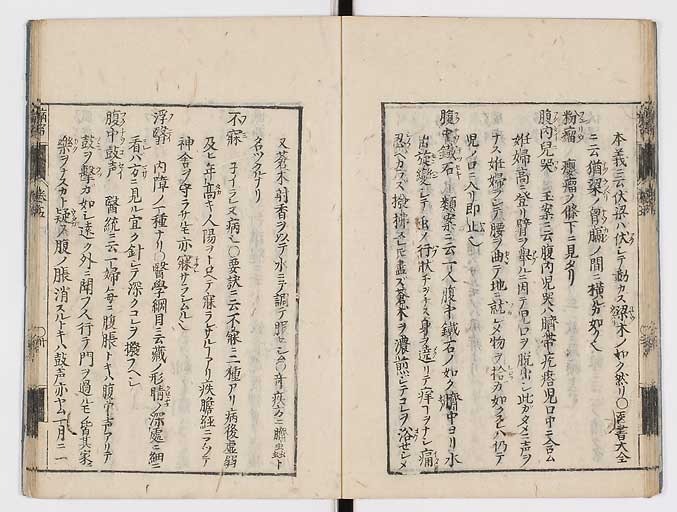 本義ニ云伏梁ハ伏シテ動カス梁木ノ如ク然リ〇医書大全
ニ云猶梁ノ胷膈ノ間ニ横カ如クヘ
粉瘤 癭瘤ノ條下ニ見タリ
腹内兒哭 玉案ニ云腹内兒哭ハ臍帯疙瘩児口中ニ含ム
妊婦高ニ登リ臂ヲ舉ルニ因テ児口ヲ脱出シ此カタメニ声ヲ
ナス妊婦ヲシテ腰ヲ曲テ地ニ就シメ物ヲ拾カ如クスレハ仍テ
児ノ口ニ入リ即止ヘ
腹中鐵石 類案ニ云一人腹中鐵石ノ如ク臍中ヨリ水
出旋変シテ虫ノ行状ヲナス身ヲ遶リテ痒ヲナシ痛
忍ヘカラス撥掃スレ𪜈盡ス蒼木ヲ濃煎シテコレヲ浴セシメ
又蒼木射香ヲ以テ水ニテ調テ服セシム〇奇疾方ニ臍虫ト
名ツクナリ
不寐 子イラレヌ病ヘ〇要訣ニ云不寐ニ二種アリ病後虚弱
及ヒ年高キ人陽ヲトロヘテ寐ラレザルアリ痰膽経ニアツテ
神舎ヲ守ラサルモ亦寐サラシムルヘ
浮翳 内障ノ一種ナリ〇醫學綱目ニ云藏ノ形睛ノ深處ニ細ニ
看ハ方ニ見ル宜ク針シテ深クコレヲ撥フヘシ
腹中鼓声 醫統ニ云一婦毎ニ腹脹トキハ腹中声アリテ
鼓ヲ擊カ如シ遠ク外ニ聞フ人行テ門ヲ過ルモノ皆其家ニ
樂ヲナスカト疑フ腹ノ脹消スルトキハ鼓声亦ヤム一月ニ一